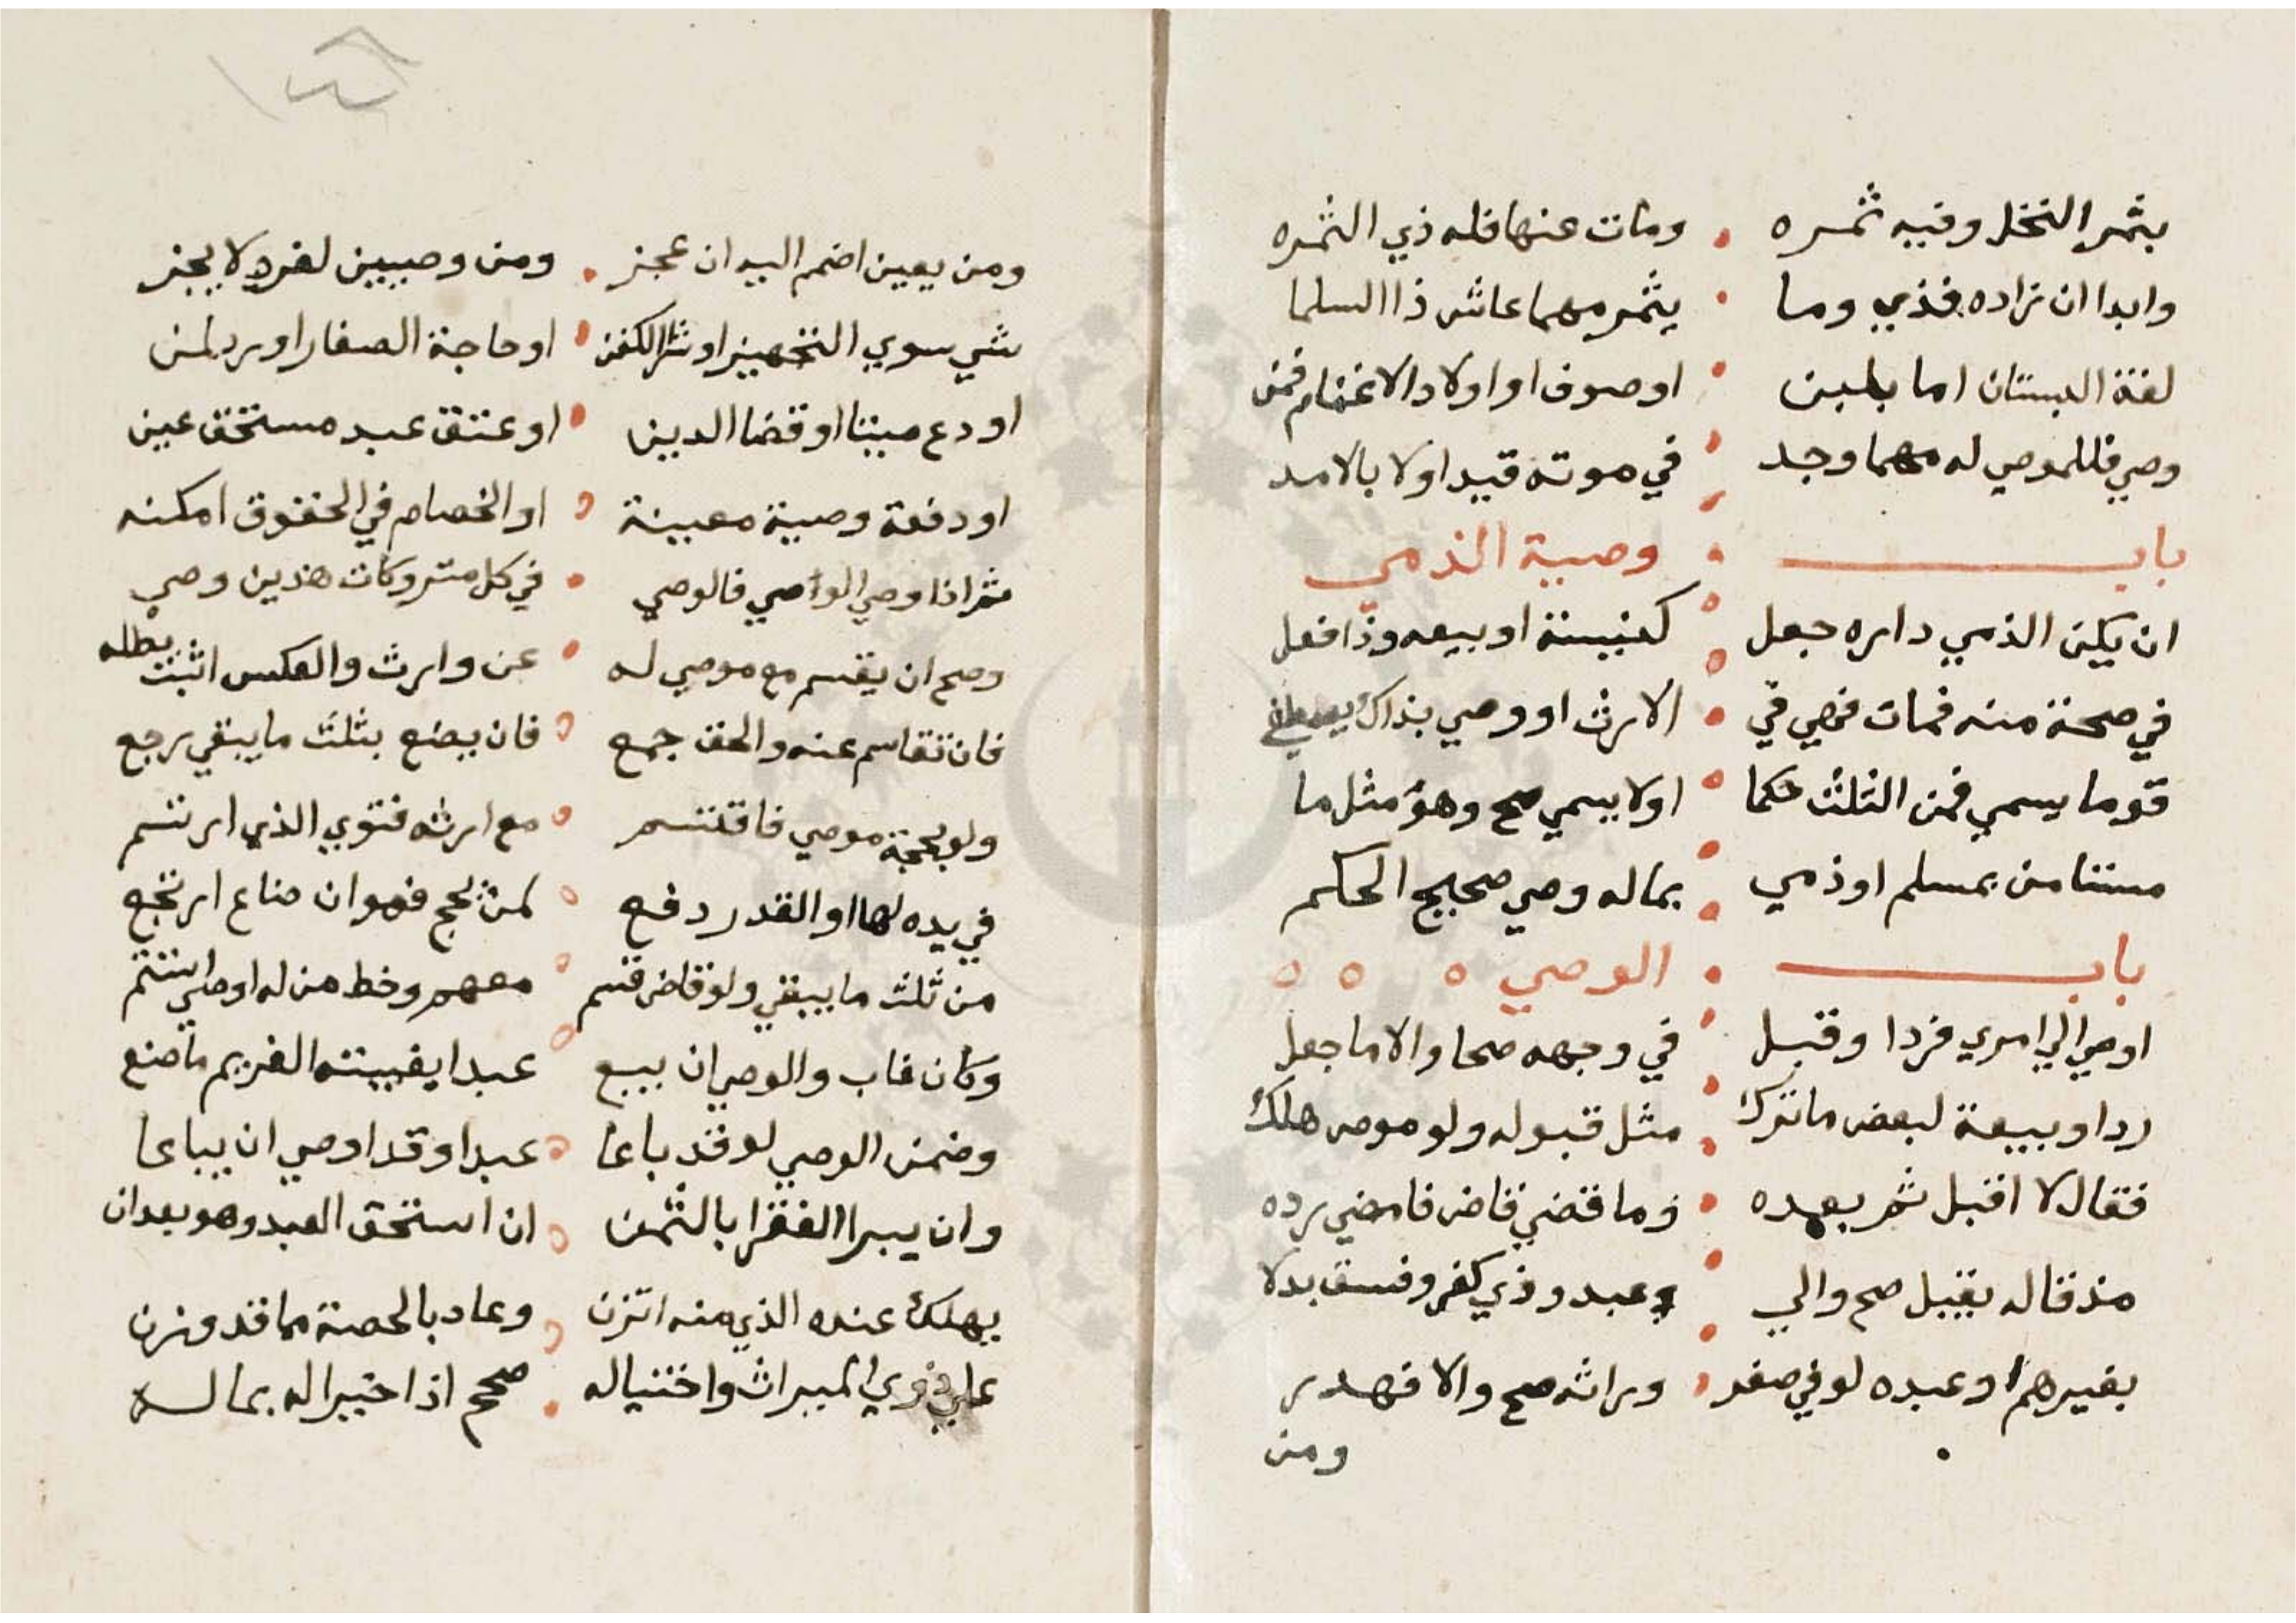 بثمر النخل وفيه ثمره ومات عنها فله ذي الثمره
وابدا ان زاده فذي وما يثمر مهما عاش ذا السلما
لغة البستان اما بلبن او صوف او اولاد الاغنام فمن
وصي فللموصي له مهما وجد في موته قيد اولا بالامد
باب وصية الذمي
ان يكن الذمي داره جعل كنيسة او بيعه وذا فعل
في صحة منه فمات فهي في الارث او وصي بذاك
قوما يسمي فمن الثلث كما اولا يسمي صح وهو مثل ما
مستامن بمسلم او ذمي بماله وصي صحيح الحكم
باب الوصي
اوصي الي امري فردا وقبل في وجهه صحا والا ما جعل
ردا وبيعة لبعض ما ترك مثل قبوله ولو موص هلك
فقال لا اقبل ثم بعده وما قضي قاض فامضي رده
مذ قاله يقبل صح والي وعبد وذي كفر وفسق بدلا
بغيرهم او عبده لو في صغر وراثه صح والا فهدر
ومن
ومن يعين اضم اليه ان عجز ومن وصيين لفرد لا يجز
شي سوي التجهيز او شرا الكفن او حاجة الصغار او رد لمن
اودع ميتا او قضا الدين او عتق عبد مستحق عين
او دفعة وصية معينة او الخصام في الحقوق امكنه
ثم اذا وصي الوصي فالوصي في كل متروكات هذين وصي
وصح ان يقسم مع موصي له عن وارث والعكس اثبت بطله
فان تقاسم عنه والحق جمع فان يضع بثلث ما يبقي رجع
ولو بحجة موصي فاقتسم مع ارثه فتوي الذي ارتسم
في يده لها او القدر دفع لمن يحج فهو ان ضاع ارتجع
من ثلث ما يبقي ولو قاض قسم معهم وخط من له اوصي
وكان غاب والوصي ان يبع عبدا بغيبة الغريم ما صنع
وضمن الوصي لو قد باعا عبدا وقد اوصي ان يباعا
وان يبرا الفقرا بالثمن ان استحق العبد وهو بعد ان
يهلك عنده الذي منه اتزن وعاد بالحصة مما قد وزن
علي ذوي الميراث واختياله صح اذا خيرا له بماله